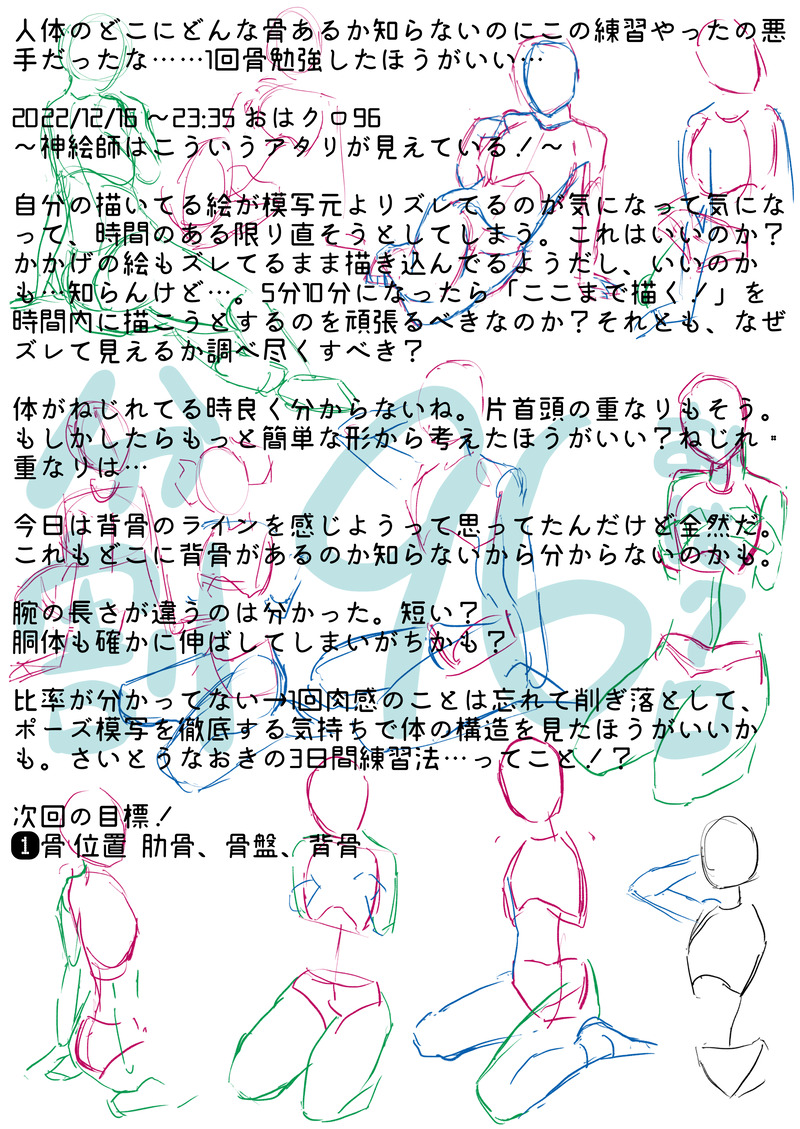 人体のどこにどんな骨あるか知らないのにこの練習やったの悪
手だったな……1回骨勉強したほうがいい…
2022/12/16 ～23:35 おはクロ96
～神絵師はこういうアタリが見えている！～
自分の描いてる絵が模写元よりズレてるのが気になって気にな
って、時間のある限り直そうとしてしまう。これはいいのか？
かかげの絵もズレてるまま描き込んでるようだし、いいのか
も…知らんけど…。5分10分になったら「ここまで描く！」を
時間内に描こうとするのを頑張るべきなのか？それとも、なぜ
ズレて見えるか調べ尽くすべき？
体がねじれてる時良く分からないね。片首頭の重なりもそう。
もしかしたらもっと簡単な形から考えたほうがいい？ねじれ・
重なりは…
今日は背骨のラインを感じようって思ってたんだけど全然だ。
これもどこに背骨があるのか知らないから分からないのかも。
腕の長さが違うのは分かった。短い？
胴体も確かに伸ばしてしまいがちかも？
比率が分かってない→1回肉感のことは忘れて削ぎ落として、
ポーズ模写を徹底する気持ちで体の構造を見たほうがいいか
も。さいとうなおきの3日間練習法…ってこと！？
次回の目標！
1骨 位置 肋骨、骨盤、背骨
96